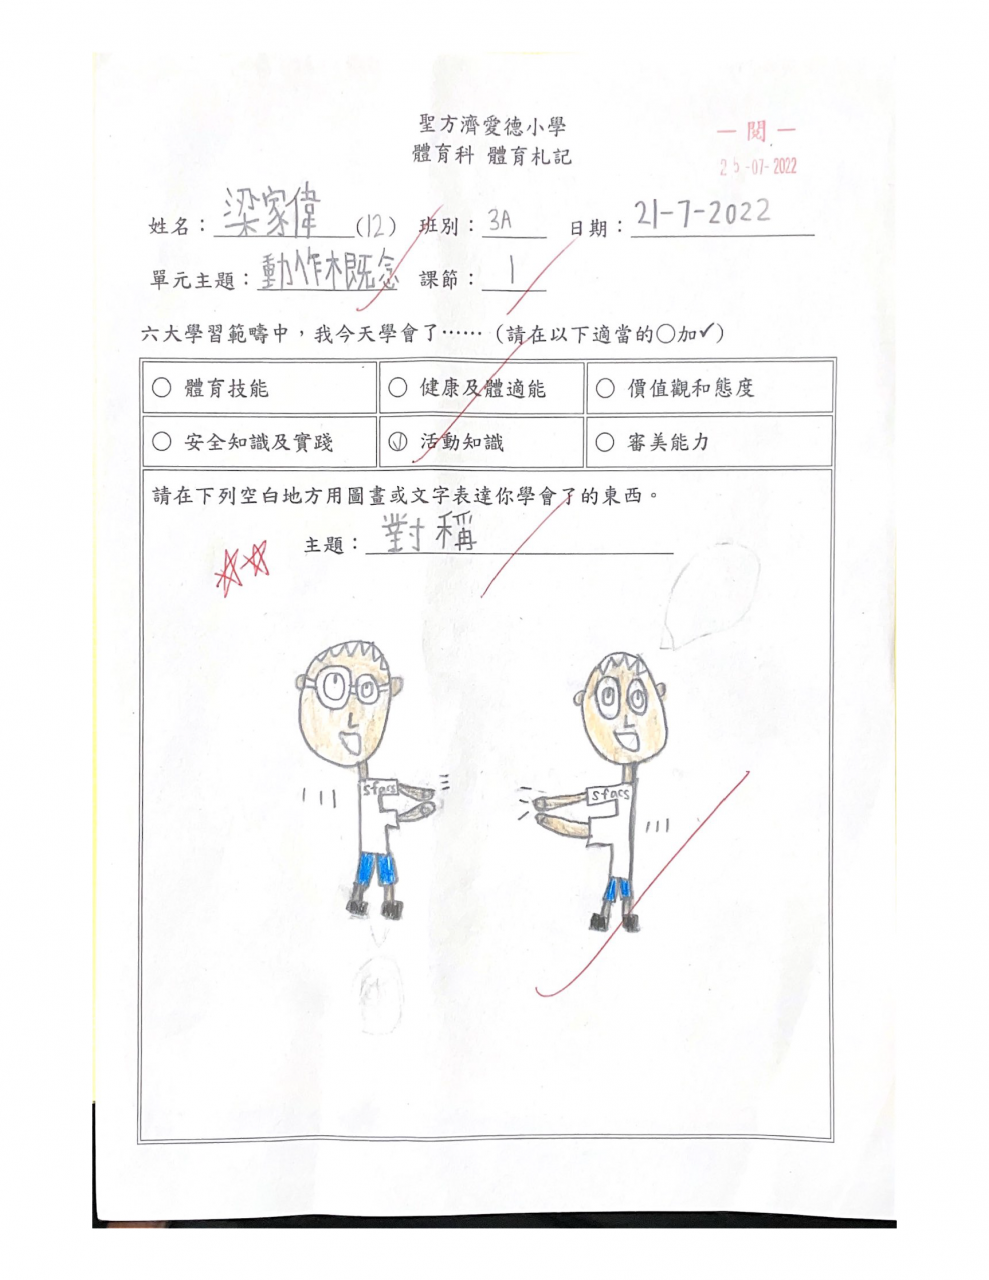 聖方濟愛德小學
體育科 體育札記
一 閱 一
25-07-2022
姓名：梁家偉(12) 班別：3A 日期：21-7-2022
單元主題：動作概念 課節：1
六大學習範疇中，我今天學會了……（請在以下適當的○加✓）
○ 體育技能 ○ 健康及體適能 ○ 價值觀和態度
○ 安全知識及實踐 ✓ 活動知識 ○ 審美能力
請在下列空白地方用圖畫或文字表達你學會了的東西。
主題：對稱
sfacs
sfacs